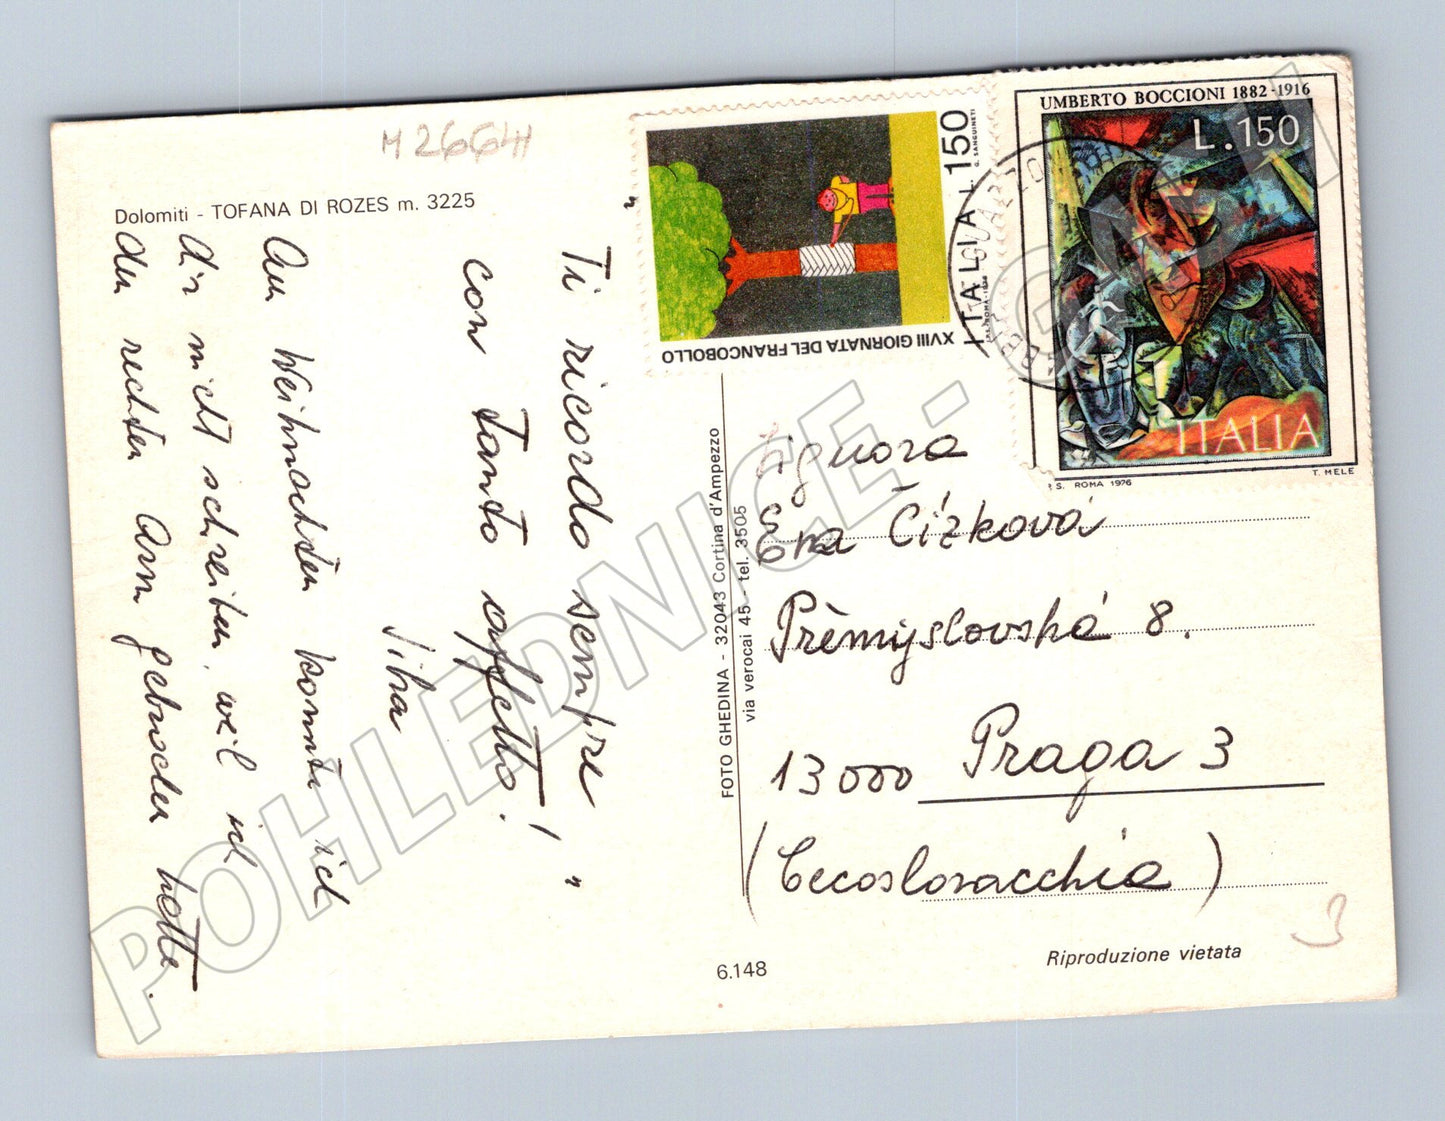 M 2664
Dolomiti - TOFANA DI ROZES m. 3225
„Ti ricordo sempre
con tanto affetto!"
Jiha
Am Weihnachten konnte ich
dir nicht schreiben, weil ich
den rechten Arm gebrochen hatte.
XVIII GIORNATA DEL FRANCOBOLLO
ITALIA L 150
G. SANGUINETI
UMBERTO BOCCIONI 1882-1916
L. 150
ITALIA
P.S. ROMA 1976
T. MELE
FOTO GHEDINA - 32043 Cortina d'Ampezzo
via verocai 45 - tel. 3505
Signora
Eva Čízková
Prèmyslovská 8.
13000 Praga 3
(Cecoslovacchia)
6.148
Riproduzione vietata
3
POHLEDNICE - GABRI